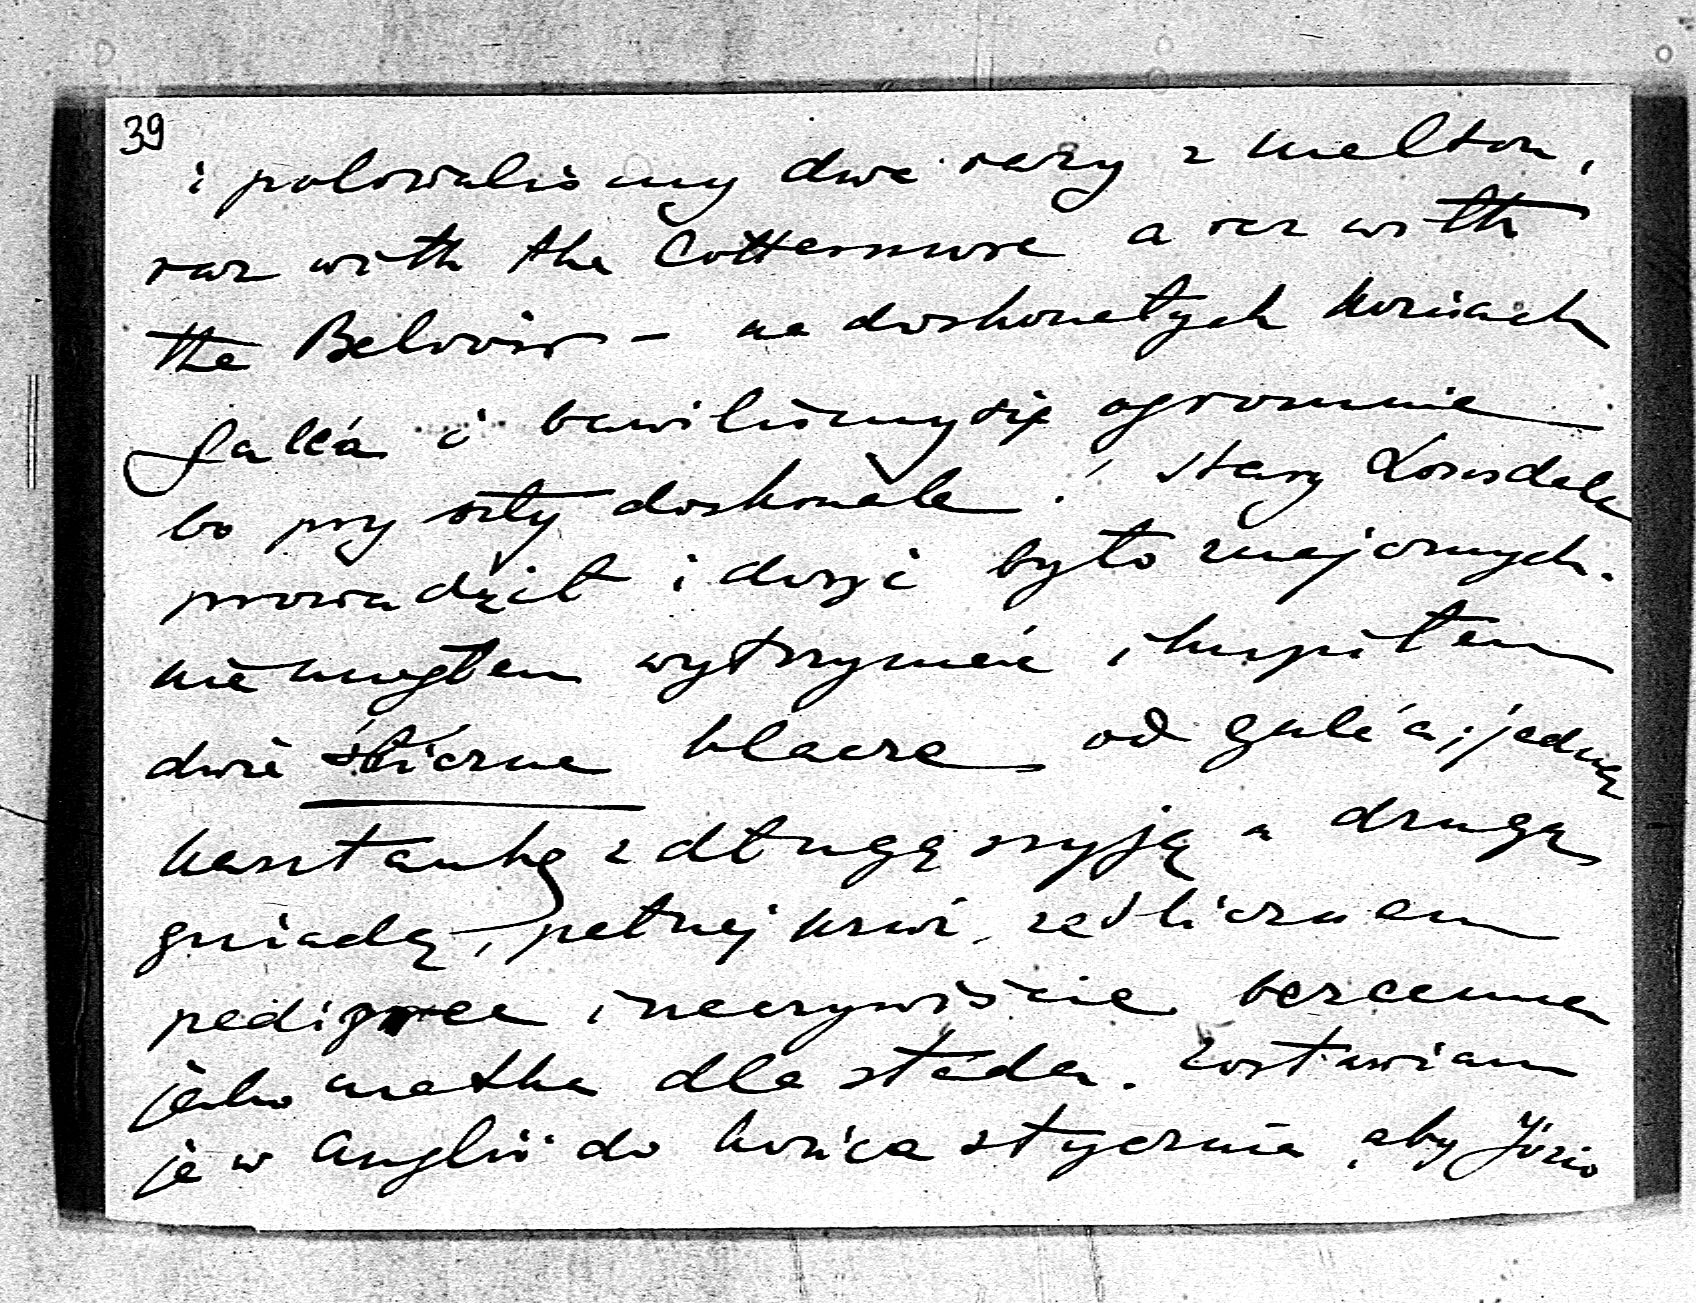 39
i polowaliśmy dwa razy z Melton,
raz with the Cottesmore a raz with
the Belvoir – na doskonałych koniach
i bawiliśmy się ogromnie
bo psy szły doskonale! Stary Lonsdale
prowadził i dosyć było znajomych.
nie mogłem wytrzymać i kupiłem
dwie śliczne klacze od ; jedną
kasztankę z długą szyją a drugą
gniadą, pełnej krwi, ze ślicznem
pedigree i rzeczywiście bezcenna
jako matka dla stada. Zostawiam
je w Anglii do końca stycznia, aby Józio